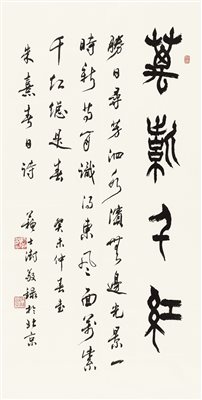 萬紫千紅
勝日尋芳泗水濱無邊光景一
時新等閒識得東風面萬紫
千紅總是春
朱熹春日詩
癸未仲春
蘇士澍敬録於北京